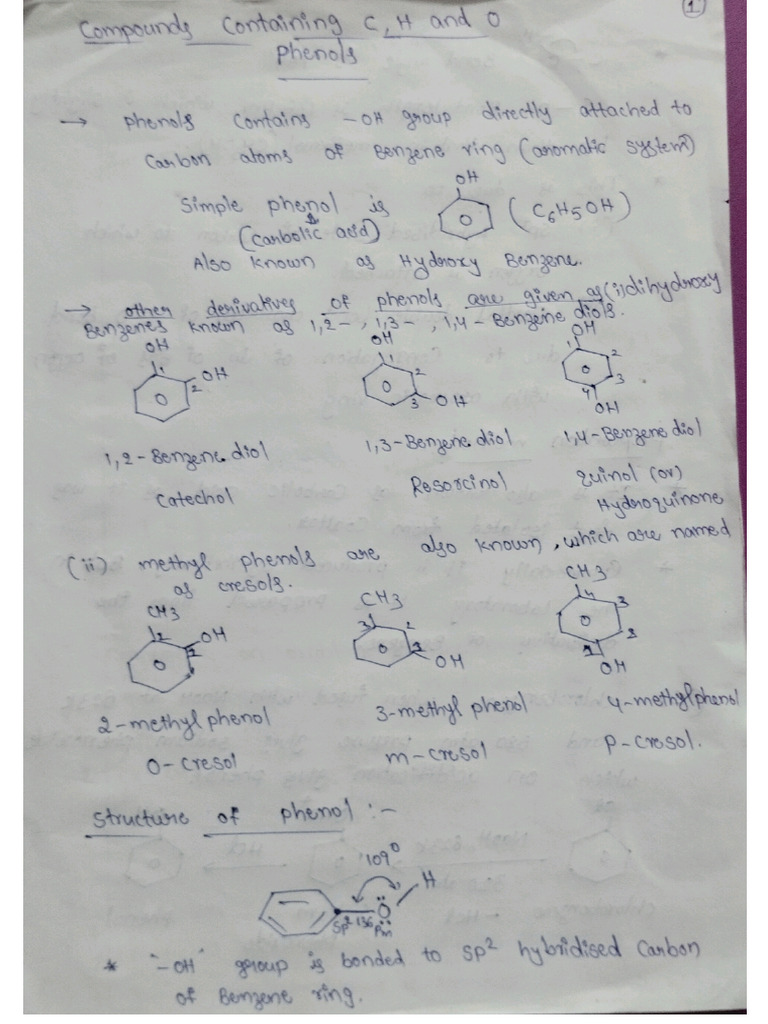 1
Compounds Containing C, H and O
Phenols
→ Phenols contains -OH group directly attached to
Carbon atoms of Benzene ring (aromatic system)
OH
Simple phenol is (C6H5OH)
(Carbolic acid)
Also known as Hydroxy Benzene.
→ other derivatives of phenols are given as (i) dihydroxy
Benzenes known as 1,2-, 1,3-, 1,4- Benzene diols.
OH OH OH
1 2 OH 1 2 3 OH 1 2 3 4 OH
1,2-Benzene diol 1,3-Benzene diol 1,4-Benzene diol
Catechol Resorcinol quinol (or)
Hydroquinone
(ii) methyl phenols are also known, which are named
as cresols.
CH3 CH3 CH3
2 1 OH 3 2 1 OH 4 3 2 1 OH
2-methyl phenol 3-methyl phenol 4-methylphenol
O-cresol m-cresol p-cresol.
Structure of phenol :-
109°
H
O
Sp2 136 Pm
* "-OH" group is bonded to Sp2 hybridised Carbon
of Benzene ring.